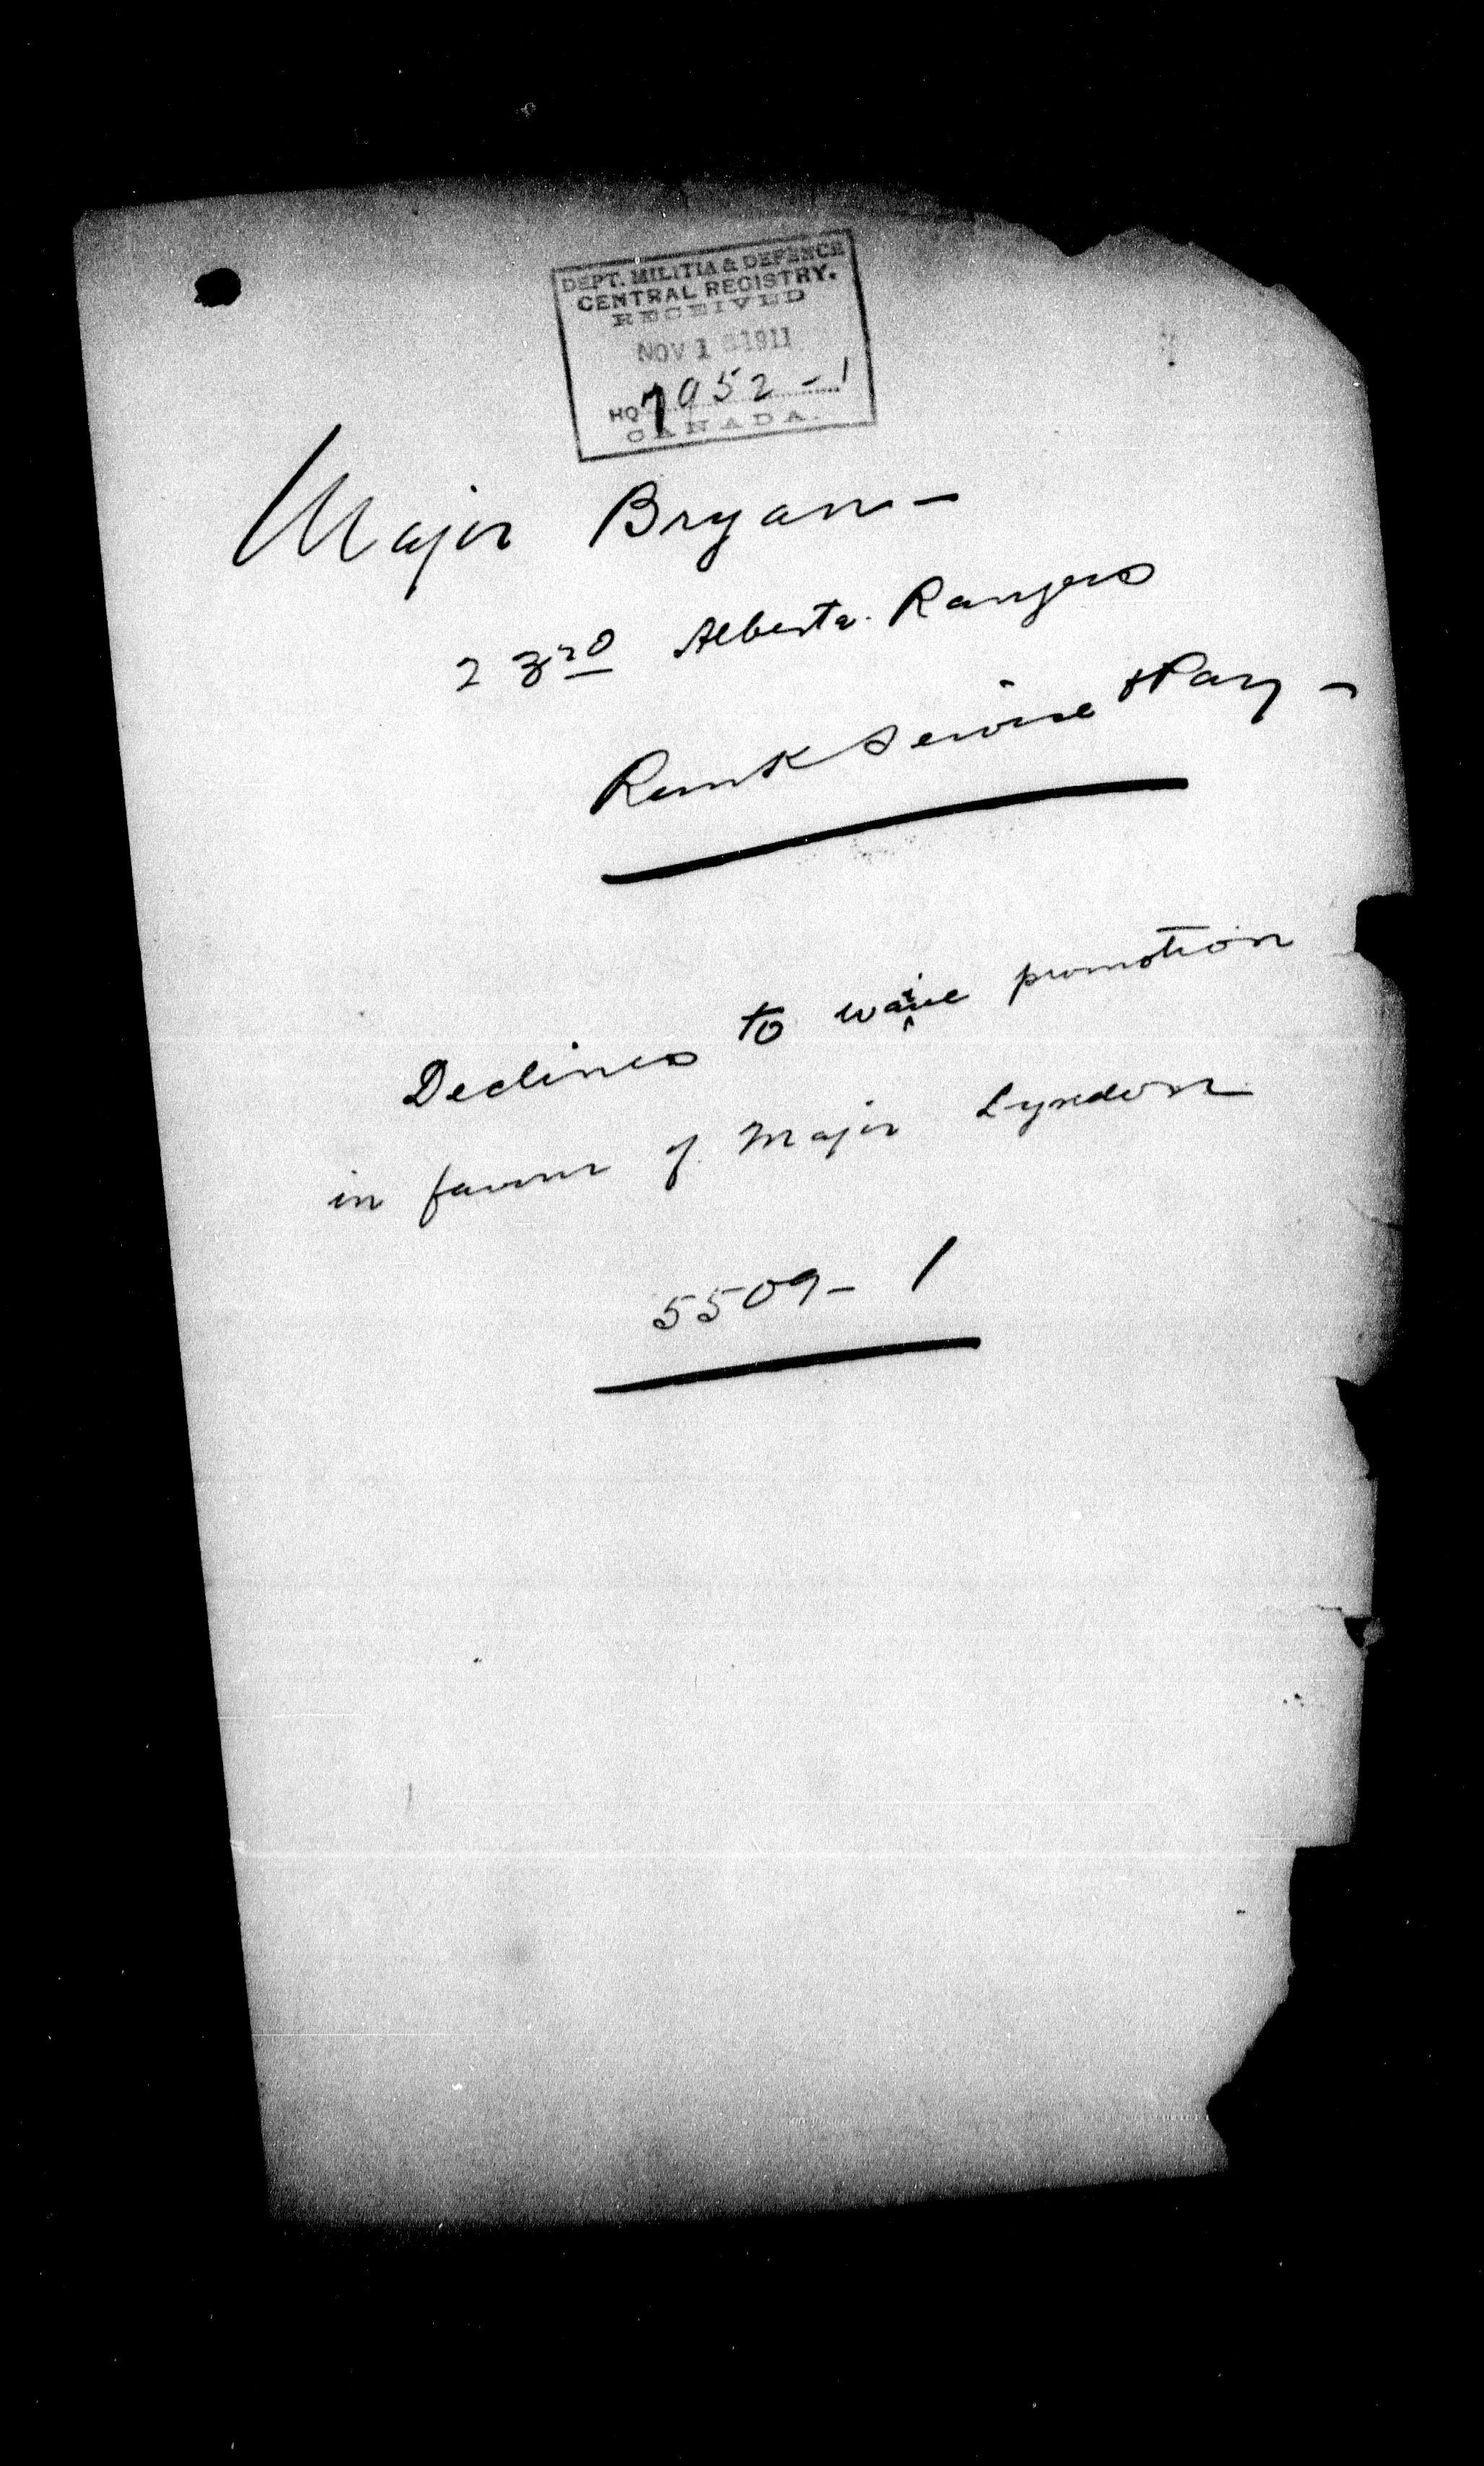 DEPT. MILITIA & DEFENCE
CENTRAL REGISTRY.
RECEIVED
NOV 16 1911
HQ 7952-1
CANADA.
Major Bryan-
23rd Alberta. Rangers
Rank Service & Pay -
Declines to waive promotion
in favour of Major Lyndon
5509- 1